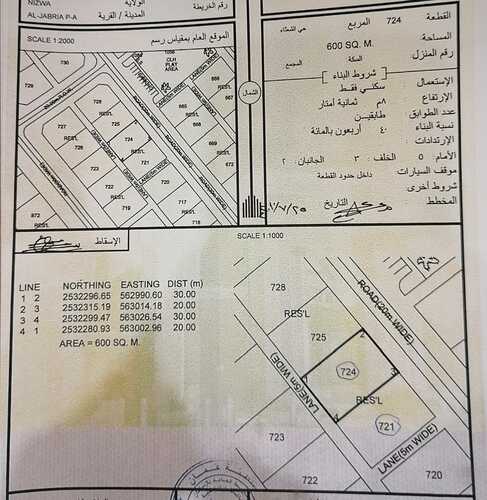 الولاية
NIZWA
رقم الخريطة
المدينة / القرية
AL-JABRIA P-A
القطعة 724 المربع حي الشعثاء
المساحة 600 SQ. M.
رقم المنزل السكة المجمع
شروط البناء
الإستعمال سكني فقط
الإرتفاع ٨م ثمانية أمتار
عدد الطوابق طابقين
نسبة البناء ٤٠ أربعون بالمائة
الإرتدادات
الأمام ٥ الخلف ٣ الجانبان ٢
موقف السيارات داخل حدود القطعة
شروط أخرى
المخطط التاريخ
SCALE 1:2000 الموقع العام بمقياس رسم
الشمال
1058
CLH
PLAT
AREA
730
729
RES'L
728
725
724
RES'L
721
RES'L
720
RES'L
719
718
668
667
RES'L
666
663
672
872
RES'L
RES'L
LANE(5m WIDE)
ROAD(20m WIDE)
الإسقاط
SCALE 1:1000
LINE NORTHING EASTING DIST (m)
1 2 2532296.65 562990.60 30.00
2 3 2532315.19 563014.18 20.00
3 4 2532299.47 563026.54 30.00
4 1 2532280.93 563002.96 20.00
AREA = 600 SQ. M.
728
RES'L
725
ROAD(20m WIDE)
2
1
724
3
4
RES'L
LANE(5m WIDE)
721
723
LANE(5m WIDE)
722
720